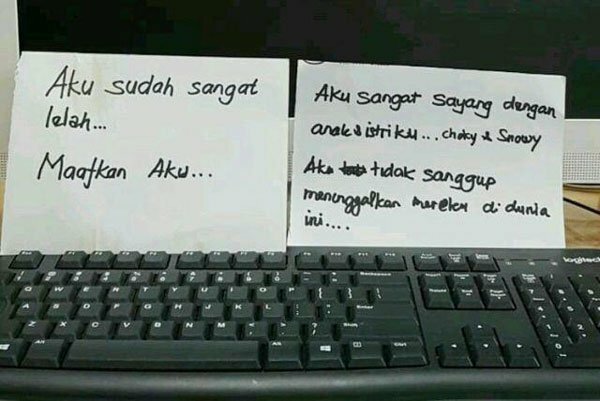 Aku sudah sangat
lelah...
Maafkan Aku...
Aku sangat sayang dengan
anak & istriku... choky & Snowy
Aku tidak sanggup
meninggalkan mereka di dunia
ini....
logitech